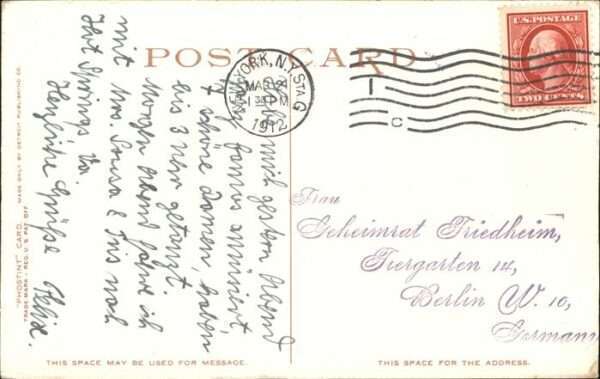 POST CARD
U.S. POSTAGE
TWO CENTS
NEW YORK, N.Y. STA. G
MAR
1 30 PM
1912
C
Habe mich gestern Abend
ganz famos amüsiert,
7 schöne Damen, haben
bis 3 Uhr getanzt.
Morgen Abend fahre ich
mit Mrs. Sousa & Iris nach
Hot Springs Va.
Herzliche Grüße Felix.
"PHOSTINT" CARD. MADE ONLY BY DETROIT PUBLISHING CO.
TRADE MARK - REG. U.S. PAT. OFF.
Frau
Geheimrat Friedheim,
Tiergarten 14,
Berlin W. 10,
Germany
THIS SPACE MAY BE USED FOR MESSAGE.
THIS SPACE FOR THE ADDRESS.